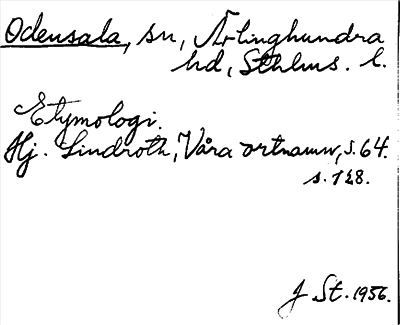 Odensala, sn, Ärlinghundra
hd, Sthlms. l.
Etymologi.
Hj. Lindroth, Våra ortnamn, s. 64.
s. 128.
J St. 1956.